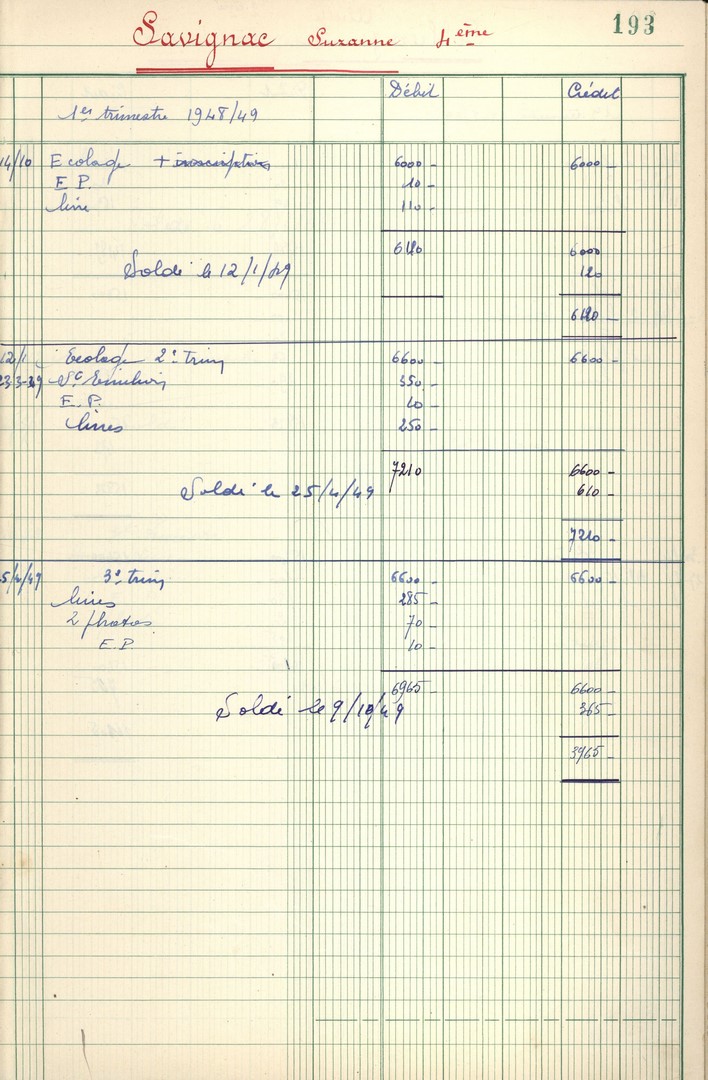 193
Savignac Suzanne 4ème
Débit Crédit
1er trimestre 1948/49
14/10 Ecolage + inscription 6000 - 6000 -
E P. 10 -
livre 110 -
6120 6000
Soldé le 12/1/49 120
6120 -
12/1 Ecolage 2e trim 6600 - 6600 -
23-3-49 St Emilion 350 -
E. P. 10 -
livres 250 -
7210 6600 -
Soldé le 25/4/49 610 -
7210 -
5/4/49 3e trim 6600 - 6600 -
livres 285 -
2 photos 70 -
E.P. 10 -
6965 - 6600 -
Soldé le 9/10/49 365 -
3965 -